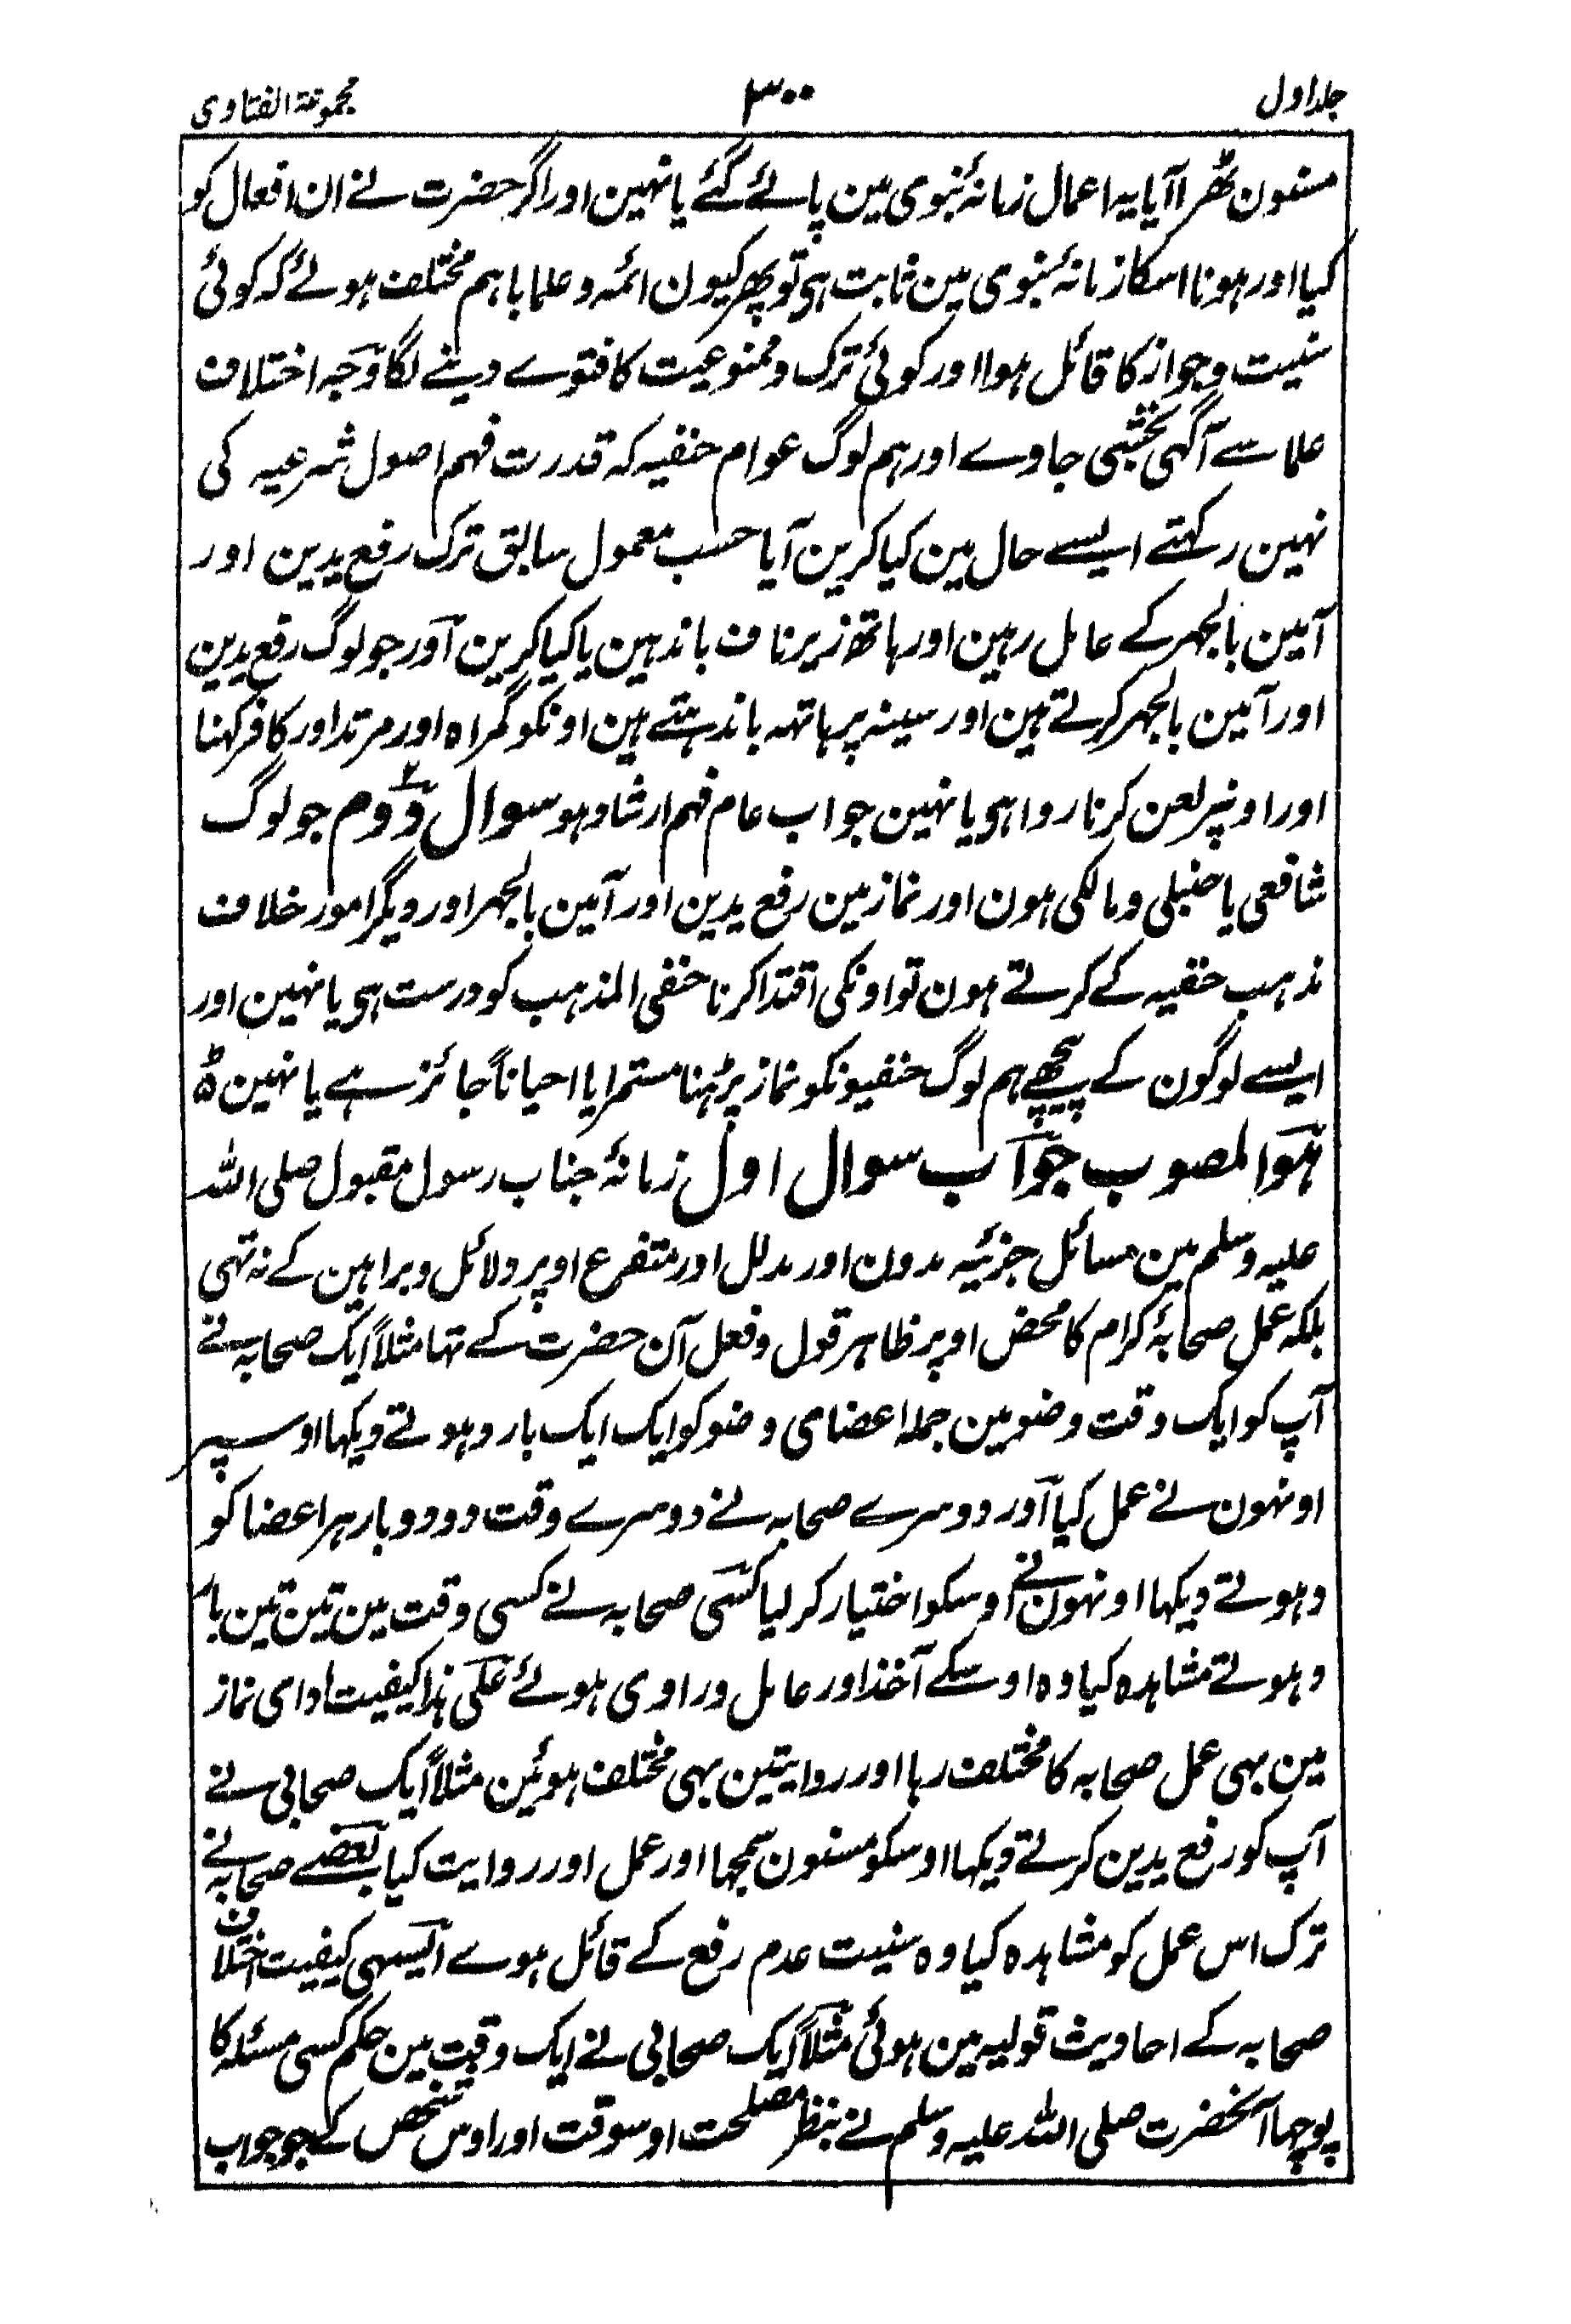 جلد اول ۳۰۰ مجموعۃ الفتاوی
مسنون ٹھرا آیا یہ اعمال زمانۂ نبوی مین پائے گئے یا نہین اور اگر حضرت نے ان افعال کو
کیا اور ہونا اسکا زمانۂ نبوی مین ثابت ہی تو پھر کیون ائمہ و علما باہم مختلف ہوئے کہ کوئی
سنیت و جواز کا قائل ہوا اور کوئی ترک و ممنوعیت کا فتوے دینے لگا وجہ اختلاف
علما سے آگہی بخشی جاوے اور ہم لوگ عوام حنفیہ کہ قدرت فہم اصول شرعیہ کی
نہین رکہتے ایسے حال مین کیا کرین آیا حسب معمول سابق ترک رفع یدین اور
آمین بالجہر کے عامل رہین اور ہاتھ زیر ناف باندہین یا کیا کرین اور جو لوگ رفع یدین
اور آمین بالجہر کرتے ہین اور سینہ پر ہاتہہ باندہتے ہین اونکو گمراہ اور مرتد اور کافر کہنا
اور اونپر لعن کرنا روا ہی یا نہین جواب عام فہم ارشاد ہو سوال دوم جو لوگ
شافعی یا حنبلی و مالکی ہون اور نماز مین رفع یدین اور آمین بالجہر اور دیگر امور خلاف
مذہب حنفیہ کے کرتے ہون تو اونکی اقتدا کرنا حنفی المذہب کو درست ہی یا نہین اور
ایسے لوگون کے پیچھے ہم لوگ حنفیونکو نماز پڑہنا مستمرا یا احیاناً جائز ہے یا نہین
ہو المصوب جواب سوال اول زمانۂ جناب رسول مقبول صلی اللہ
علیہ وسلم مین مسائل جزئیہ مدون اور مدلل اور متفرع اوپر دلائل و براہین کے نہ تہی
بلکہ عمل صحابۂ کرام کا محض اوپر ظاہر قول و فعل آن حضرت کے تہا مثلاً ایک صحابہ نے
آپ کو ایک وقت وضو مین جملہ اعضای وضو کو ایک ایک بار دہوتے دیکہا اوسپر
اونہون نے عمل کیا اور دوسرے صحابہ نے دوسرے وقت دو دو بار ہر اعضا کو
دہوتے دیکہا اونہون نے اوسکو اختیار کر لیا کسی صحابہ نے کسی وقت مین تین تین بار
دہوتے مشاہدہ کیا وہ اوسکے آخذ اور عامل و راوی ہوئے علی ہذا کیفیت ادای نماز
مین بہی عمل صحابہ کا مختلف رہا اور روایتین بہی مختلف ہوئین مثلاً ایک صحابی نے
آپ کو رفع یدین کرتے دیکہا اوسکو مسنون سمجہا اور عمل اور روایت کیا بعضے صحابہ نے
ترک اس عمل کو مشاہدہ کیا وہ سنیت عدم رفع کے قائل ہوے ایسہی کیفیت اختلاف
صحابہ کے احادیث قولیہ مین ہوئی مثلاً ایک صحابی نے ایک وقت مین حکم کسی مسئلہ کا
پوچہا آنحضرت صلی اللہ علیہ وسلم نے بنظر مصلحت اوسوقت اور اوس شخص کے جو جواب